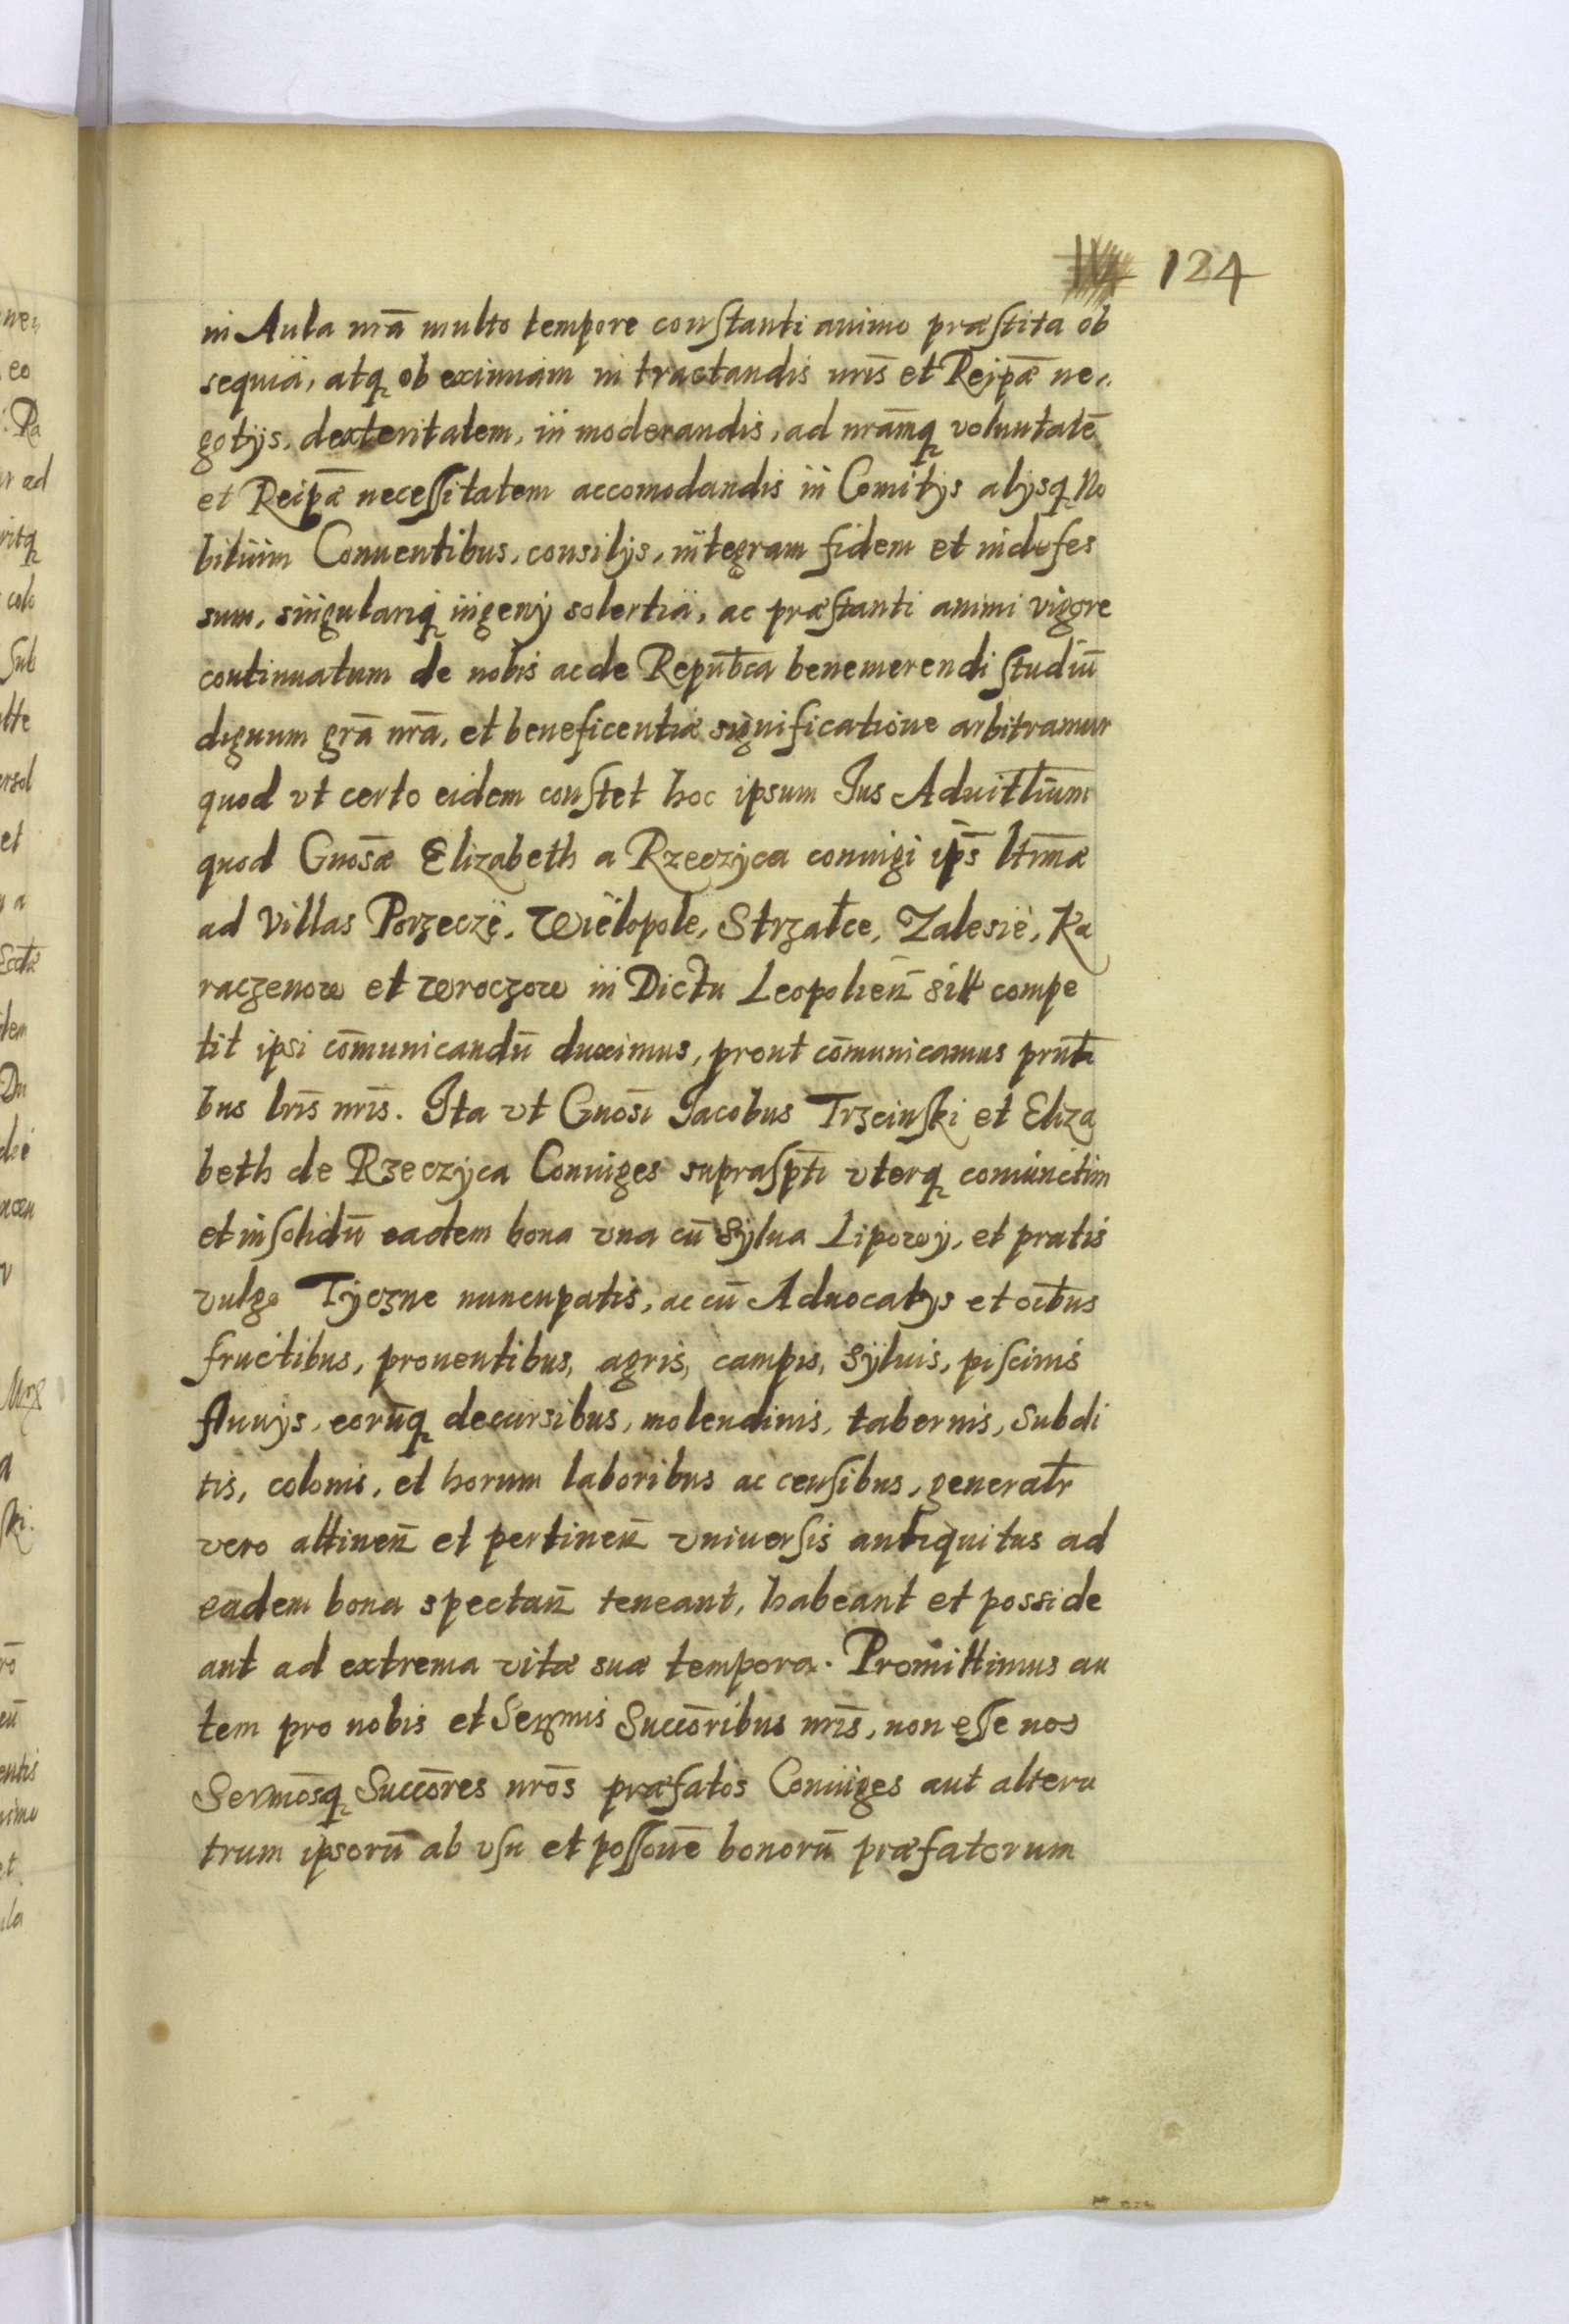 124
in Aula nr̄a multo tempore constanti animo præstita ob
sequia, atq̨ ob eximiam in tractandis nr̄is et Reipǣ ne„
gotijs, dexteritatem, in moderandis, ad nrāmq̨ voluntatē
et Reipǣ necessitatem accomodandis in Comitijs alijsq̨ No
bilium Conuentibus, consilijs, integram fidem et indefes
sum, singulariq̨ ingenij solertia, ac præstanti animi vigore
continuatum de nobis ac de Repub̄ca benemerendi studiū
dignum grā nr̄a, et beneficentiæ significatione arbitramur
quod vt certo eidem constet hoc ipsum Jus Aduitt̄ium
quod Gnosǣ Elizabeth a Rzeczyca coniugi ips̄ ltīmæ
ad Villas Porzeczè, Wielopole, Strzałce, Zalesie, Ka
raczenow et Wroczow in Dictu Leopolien̄ sitt̄ compe
tit ipsi cōmunicandū duximus, prout cōmunicamus prnt̄i
bus lr̄is nr̄is. Ita vt Gnosī Jacobus Trzcinski et Eliza
beth de Rzeczyca Coniuges suprasptī vterq̨ coniunctim
et insolidū eadem bona vna cū Sylua Lipowy, et pratis
vulgo Tyczne nuncupatis, ac cū Aduocatijs et oībus
fructibus, prouentibus, agris, campis, syluis, piscinis
fluuijs, eorūq̨ decursibus, molendinis, tabernis, subdi
tis, colonis, et horum laboribus ac censibus, generalr̄
vero attinen̄ et pertinen̄ vniuersis antiquitus ad
eadem bona spectan̄ teneant, habeant et posside
ant ad extrema vitæ suæ tempora. Promittimus au
tem pro nobis et Sermis Succōribus nr̄is, non esse nos
Sermosq̨ Succōres nrōs præfatos Coniuges aut alteru
trum ipsorū ab vsu et possoūe bonorū præfatorum